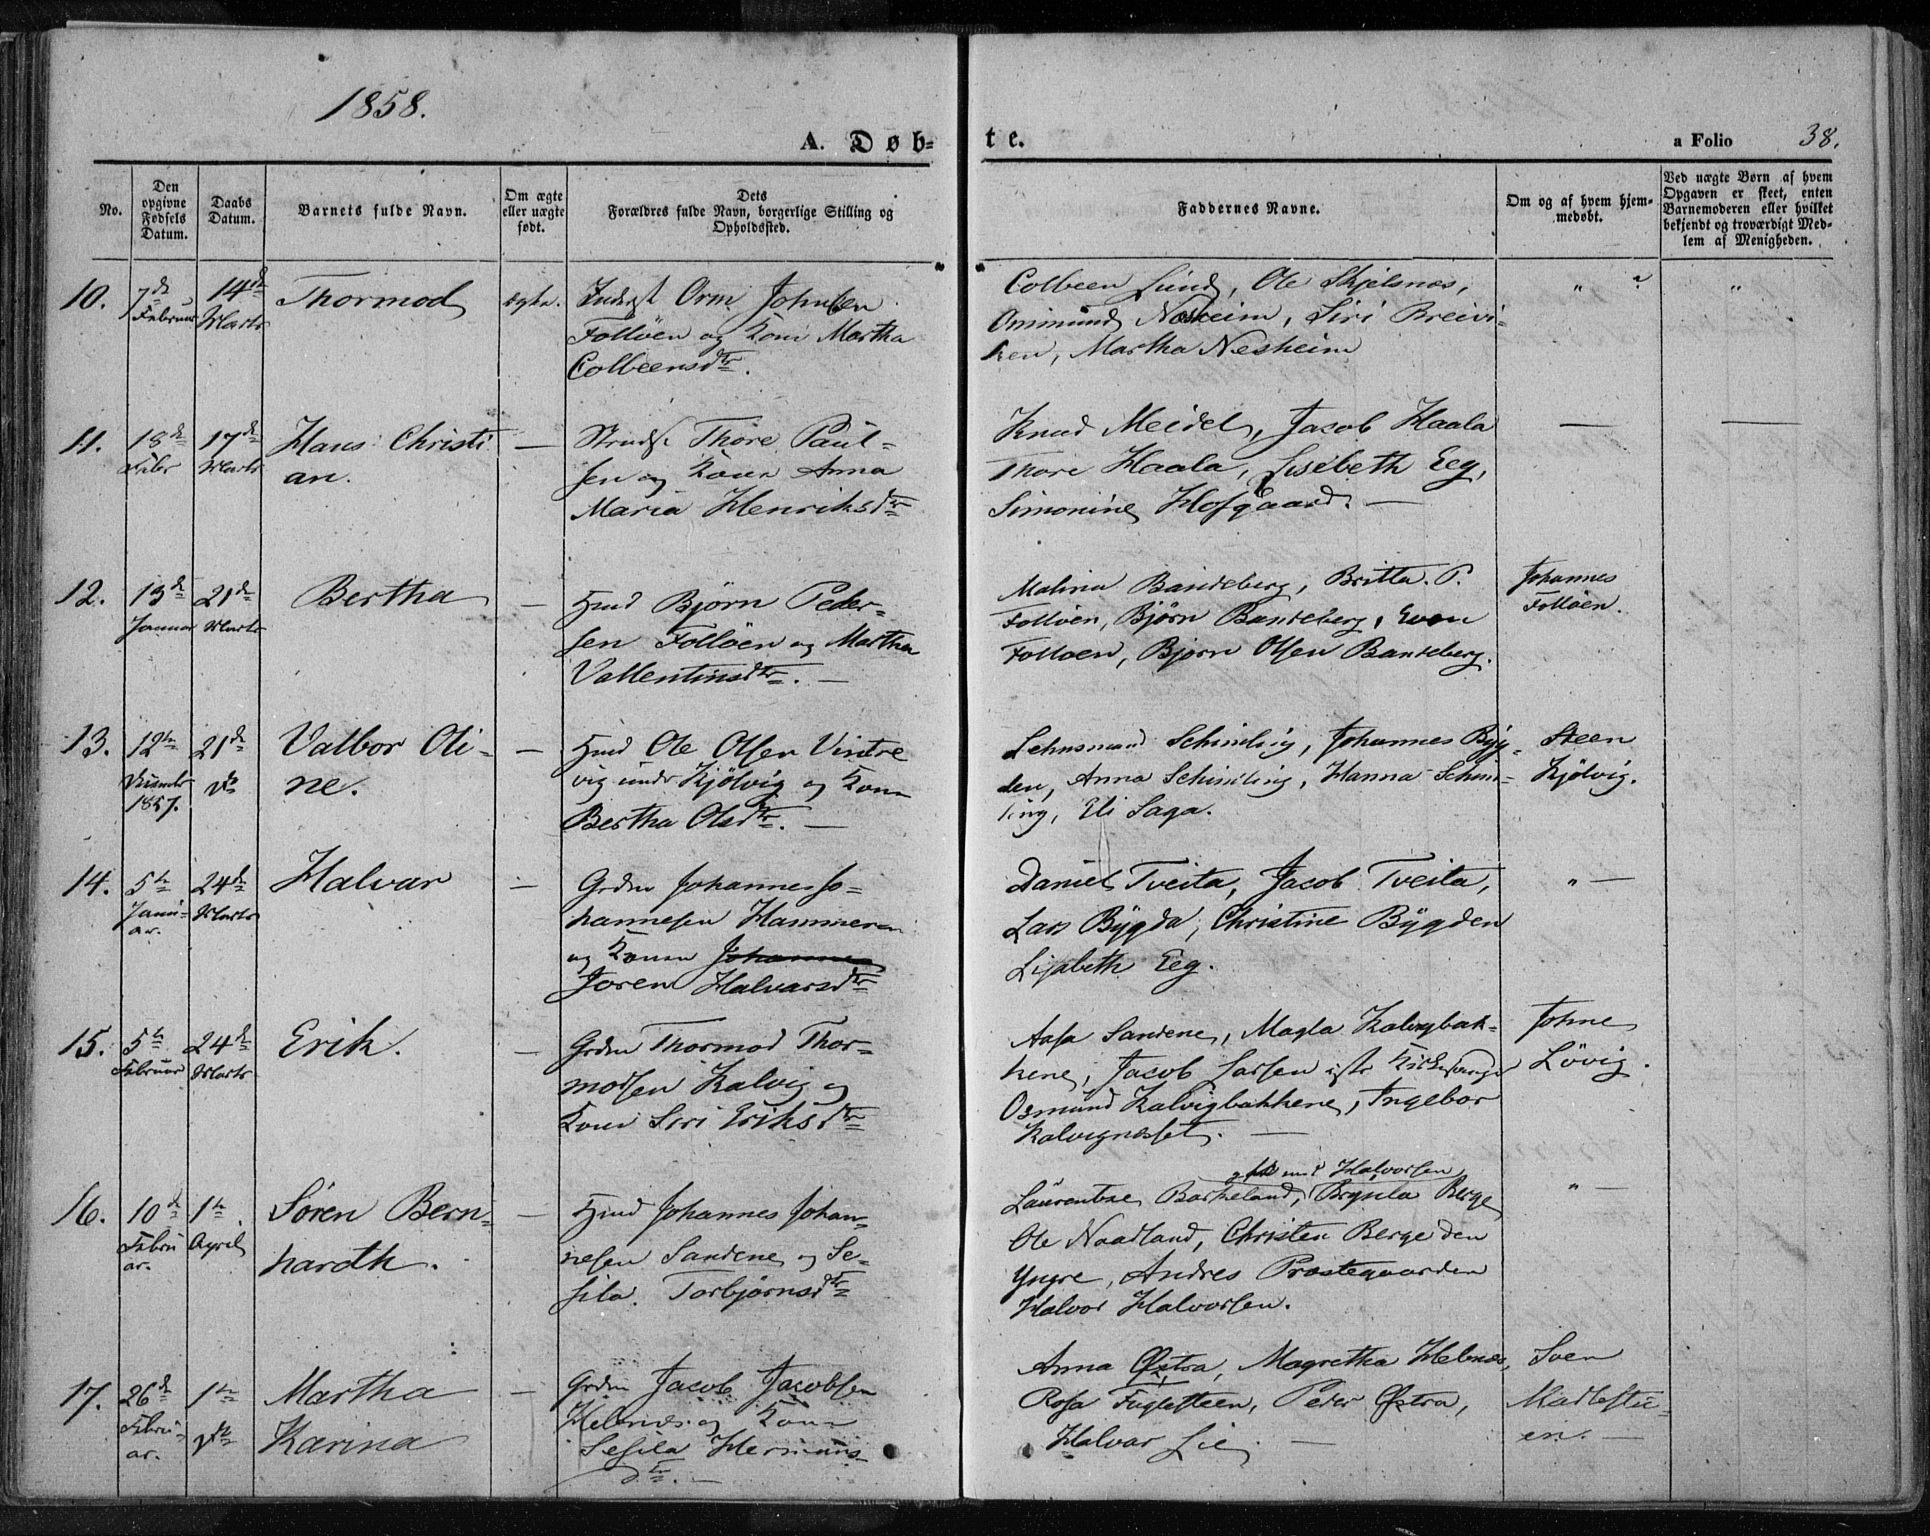 1858.
A. Døb-
te.
a Folio 38.
No.
Den
opgivne
Fødsels
Datum.
Daabs
Datum.
Barnets fulde Navn.
Om ægte
eller uægte
født.
Dets
Forældres fulde Navn, borgerlige Stilling og
Opholdssted.
Faddernes Navne.
Om og af hvem hjem-
medøbt.
Ved uægte Børn af hvem
Opgaven er skeet, enten
Barnemoderen eller hvilket
bekjendt og troværdigt Med-
lem af Menigheden.
10. 7de Februar
14de Marts
Thormod
ægte.
Orm Johnsen
Folløen og Kone Martha
Colbeensdtr.
Colbeen Lund, Ole Skjelsnes,
Ommund Nesheim, Siri Breivi-
ken, Martha Nesheim
" "
11. 18de Febr
17de Marts
Hans Christi
an.
—
Strands. Thore Paul-
sen og Kone Anna
Maria Henriksdtr
Knud Meidel, Jacob Haala
Thore Haala, Lisebeth Eeg,
Simonine Hofgaard. —
— —
12. 13de Januar
21de Marts
Bertha
—
Hmd Bjørn Peder-
sen Folløen og Martha
Vallentinsdtr. —
Malina Bandeberg, Britta P.
Folløen, Bjørn Bandeberg, Even
Folløen, Bjørn Olsen Bandeberg.
Johannes
Folløen.
13. 12te
1857.
21de
do
Valbor Oli-
ne.
—
Hmd Ole Olsen Vintre
vig under Kjølvig og Kone
Bertha Olsdtr. —
Lehnsmand Schimling, Johannes Byg-
den, Anna Schimling, Hanna Schim-
ling, Eli Saga.
Steen
Kjølvig.
14. 5te
Janu-
ar.
24de Marts
Halvar
—
Grdm Johannes Jo-
hannesen Hammeren
og Kone Johanne
Joren Halvarsdtr
Daniel Tveita, Jacob Tveita,
Lars Bÿgda, Christine Bÿgden
Lisabeth Eeg.
" —
15. 5te Februar
24de Marts
Erik.
—
Grdm Thormod Thor-
modsen Kalvig og
Kone Siri Eriksdtr
Aasa Sandene, Magla Kalvigbak-
kene, Jacob Larsen
Osmund Kalvigbakkene, Ingebor
Kalvignæsset. —
Johne
Løvig.
16. 10de
Febru
ar.
1te April
Søren Bern-
hardth.
—
Hmd Johannes Johan-
nesen Sandene og Se-
sila Torbjørnsdtr
Halvorsen
Laurentze Barkeland, Brynla Berge
Ole Naadland, Christen Berge den
Yngre, Andres Præstegaarden
Halvor Halvorsen.
" —
17. 26de
Febru-
ar.
1te
do
Martha
Karina
—
Grdm Jacob Jacobsen
Helnæs og Kone
Sesila Hermans-
dtr. —
Anna Østra, Magretha Helnæs,
Rosa Fuglesteen, Peder Østra,
Halvar Lie. —
Soen
Madlestu-
en. —